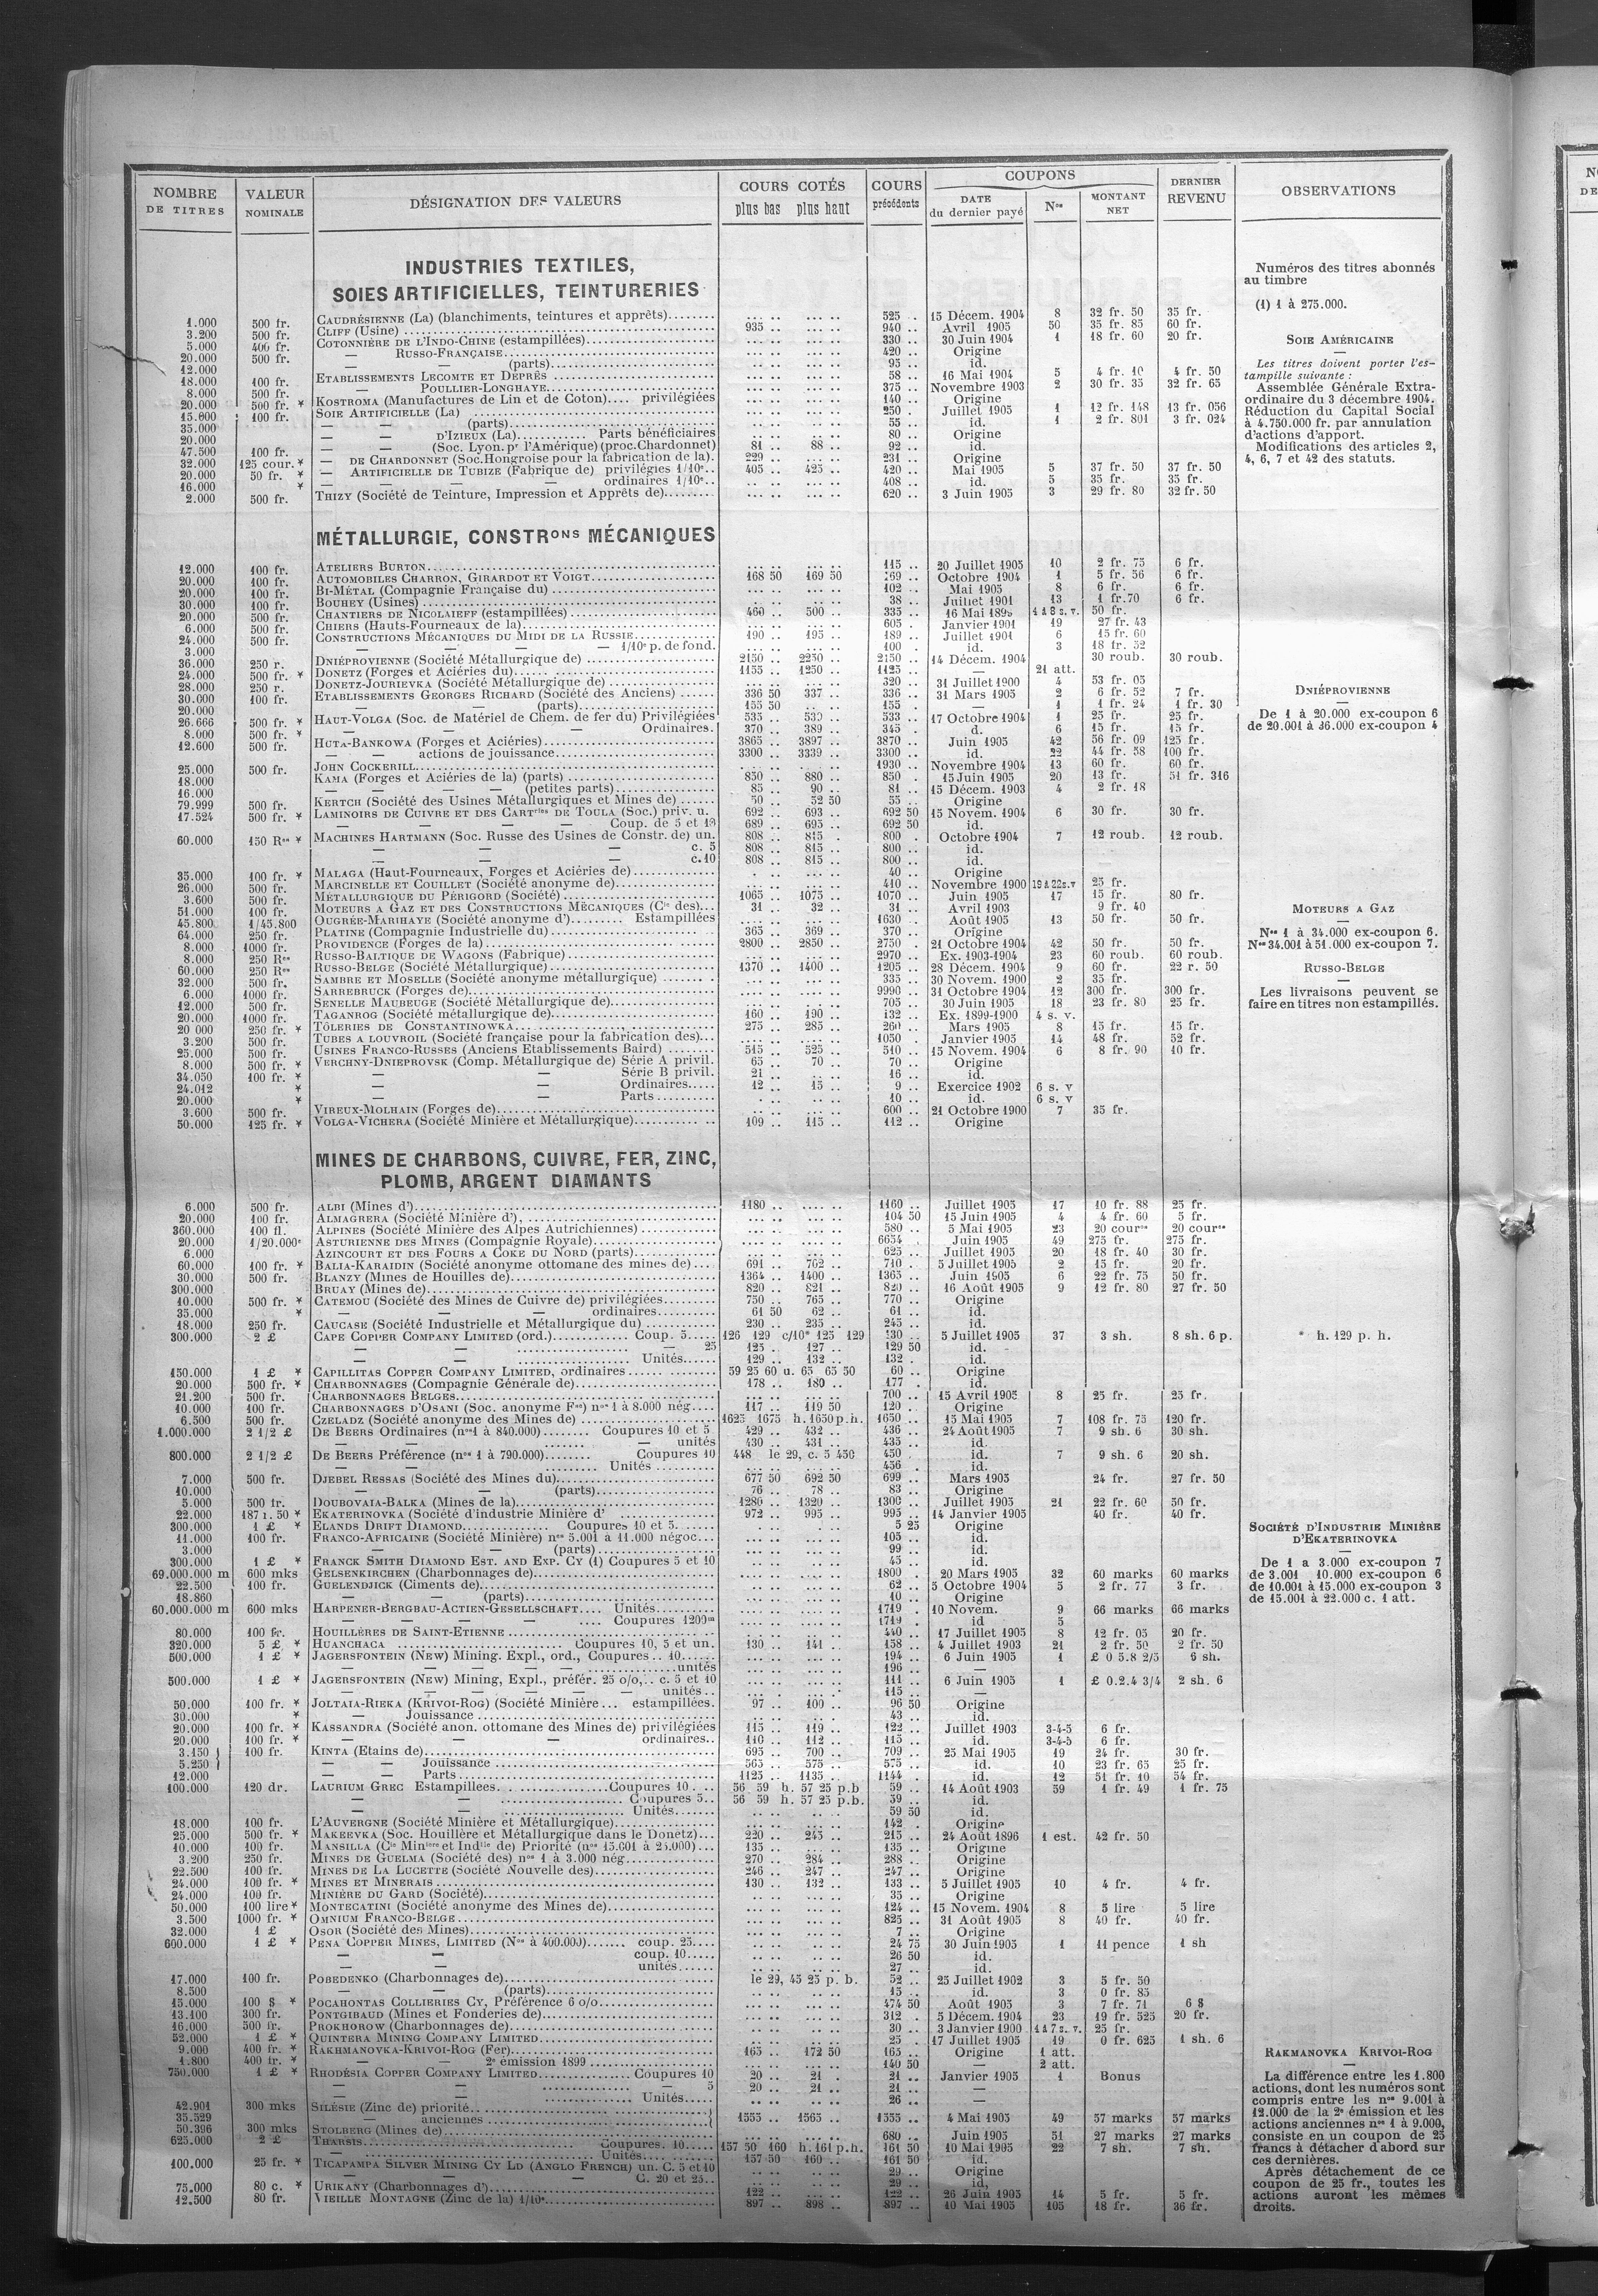 NOMBRE DE TITRES | VALEUR NOMINALE | DÉSIGNATION DES VALEURS | COURS COTÉS plus bas plus haut | COURS précédents | COUPONS DATE du dernier payé | Nos | MONTANT NET | DERNIER REVENU | OBSERVATIONS
INDUSTRIES TEXTILES,
SOIES ARTIFICIELLES, TEINTURERIES
1.000 500 fr. CAUDRÉSIENNE (La) (blanchiments, teintures et apprêts) 525 15 Décem. 1904 8 32 fr. 50 35 fr.
3.200 500 fr. CLIFF (Usine) 935 940 Avril 1905 50 35 fr. 85 60 fr.
5.000 400 fr. COTONNIÈRE DE L'INDO-CHINE (estampillées) 330 30 Juin 1904 1 18 fr. 60 20 fr.
20.000 500 fr. — RUSSO-FRANÇAISE 420 Origine
12.000 — — (parts) 95 id.
18.000 100 fr. ETABLISSEMENTS LECOMTE ET DEPRÈS 58 16 Mai 1904 5 4 fr. 10 4 fr. 50
8.000 500 fr. — POULLIER-LONGHAYE 375 Novembre 1903 2 30 fr. 35 32 fr. 65
20.000 500 fr. * KOSTROMA (Manufactures de Lin et de Coton) privilégiées 140 Origine
15.600 100 fr. SOIE ARTIFICIELLE (La) 250 Juillet 1905 1 12 fr. 148 13 fr. 056
35.000 — — (parts) 55 id. 1 2 fr. 801 3 fr. 024
20.000 — — D'IZIEUX (La) Parts bénéficiaires 80 Origine
47.500 100 fr. — — (Soc. Lyon. pr l'Amérique) (proc. Chardonnet) 81 88 92 id.
32.000 125 cour. * — DE CHARDONNET (Soc. Hongroise pour la fabrication de la) 229 231 Origine
20.000 50 fr. * — ARTIFICIELLE DE TUBIZE (Fabrique de) privilégies 1/10e 405 425 420 Mai 1905 5 37 fr. 50 37 fr. 50
16.000 * — — — ordinaires 1/10e 408 id. 5 35 fr. 35 fr.
2.000 500 fr. THIZY (Société de Teinture, Impression et Apprêts de) 620 3 Juin 1905 3 29 fr. 80 32 fr. 50
MÉTALLURGIE, CONSTRons MÉCANIQUES
12.000 100 fr. ATELIERS BURTON 115 20 Juillet 1905 10 2 fr. 75 6 fr.
20.000 100 fr. AUTOMOBILES CHARRON, GIRARDOT ET VOIGT 168 50 169 50 169 Octobre 1904 1 5 fr. 56 6 fr.
20.000 100 fr. BI-MÉTAL (Compagnie Française du) 102 Mai 1905 8 6 fr. 6 fr.
30.000 100 fr. BOUHEY (Usines) 38 Juillet 1901 13 1 fr. 70 6 fr.
20.000 500 fr. CHANTIERS DE NICOLAIEFF (estampillées) 460 500 335 16 Mai 1 à 8 s. v. 50 fr.
6.000 500 fr. CHIERS (Hauts-Fourneaux de la) 605 Janvier 1901 19 27 fr. 43
24.000 500 fr. CONSTRUCTIONS MÉCANIQUES DU MIDI DE LA RUSSIE 190 195 189 Juillet 1901 6 15 fr. 60
3.000 — — — 1/10e p. de fond. 100 id. 3 18 fr. 52
36.000 250 r. DNIÉPROVIENNE (Société Métallurgique de) 2150 2250 2150 14 Décem. 1904 30 roub. 30 roub.
24.000 500 fr. * DONETZ (Forges et Aciéries du) 1155 1250 1125 21 att.
28.000 250 r. DONETZ-JOURIEVKA (Société Métallurgique de) 320 31 Juillet 1900 4 53 fr. 05
30.000 100 fr. ETABLISSEMENTS GEORGES RICHARD (Société des Anciens) 336 50 337 336 31 Mars 1905 2 6 fr. 52 7 fr.
20.000 — — (parts) 155 50 155 — 1 1 fr. 24 1 fr. 30
26.666 500 fr. * HAUT-VOLGA (Soc. de Matériel de Chem. de fer du) Privilégiées 535 539 533 17 Octobre 1904 1 25 fr. 25 fr.
8.000 500 fr. * — — — Ordinaires. 370 389 345 d. 6 15 fr. 15 fr.
12.600 500 fr. HUTA-BANKOWA (Forges et Aciéries) 3865 3897 3870 Juin 1905 42 56 fr. 09 125 fr.
— actions de jouissance 3300 3339 3300 id. 22 44 fr. 58 100 fr.
25.000 500 fr. JOHN COCKERILL 1930 Novembre 1904 13 60 fr. 60 fr.
18.000 KAMA (Forges et Aciéries de la) (parts) 850 880 850 15 Juin 1905 20 13 fr. 51 fr. 316
16.000 — — — (petites parts) 85 90 81 15 Décem. 1903 4 2 fr. 18
79.999 500 fr. KERTCH (Société des Usines Métallurgiques et Mines de) 50 52 50 55 Origine
17.524 500 fr. * LAMINOIRS DE CUIVRE ET DES CARTries DE TOULA (Soc.) priv. u. 692 693 692 50 15 Novem. 1904 6 30 fr. 30 fr.
— — — Coup. de 5 et 10 689 695 692 50 id.
60.000 150 Rs * MACHINES HARTMANN (Soc. Russe des Usines de Constr. de) un. 808 815 800 Octobre 1904 7 12 roub. 12 roub.
— — — c. 5 808 815 800 id.
— — — c. 10 808 815 800 id.
35.000 100 fr. * MALAGA (Haut-Fourneaux, Forges et Aciéries de) 40 Origine
26.000 500 fr. MARCINELLE ET COUILLET (Société anonyme de) 410 Novembre 1900 19 à 22 s. v 25 fr.
3.600 500 fr. MÉTALLURGIQUE DU PÉRIGORD (Société) 1065 1075 1070 Juin 1905 17 15 fr. 80 fr.
51.000 100 fr. MOTEURS A GAZ ET DES CONSTRUCTIONS MÉCANIQUES (Cie des) 31 32 31 Avril 1903 9 fr. 40
45.800 1/45.800 OUGRÉE-MARIHAYE (Société anonyme d') Estampillées 1630 Août 1905 13 50 fr. 50 fr.
64.000 250 fr. PLATINE (Compagnie Industrielle du) 365 369 370 Origine
8.000 1000 fr. PROVIDENCE (Forges de la) 2800 2850 2750 21 Octobre 1904 42 50 fr. 50 fr.
8.000 250 Rs RUSSO-BALTIQUE DE WAGONS (Fabrique) 2970 Ex. 1903-1904 23 60 roub. 60 roub.
60.000 250 Rs RUSSO-BELGE (Société Métallurgique) 1370 1400 1205 28 Décem. 1904 9 60 fr. 22 r. 50
32.000 500 fr. SAMBRE ET MOSELLE (Société anonyme métallurgique) 335 30 Novem. 1900 2 35 fr.
6.000 1000 fr. SARREBRUCK (Forges de) 9990 31 Octobre 1904 12 300 fr. 300 fr.
12.000 500 fr. SENELLE MAUBEUGE (Société Métallurgique de) 705 30 Juin 1905 18 23 fr. 80 25 fr.
20.000 1000 fr. TAGANROG (Société métallurgique de) 160 190 132 Ex. 1899-1900 4 s. v.
20 000 250 fr. * TÔLERIES DE CONSTANTINOWKA 275 285 260 Mars 1905 8 15 fr. 15 fr.
3.200 500 fr. TUBES A LOUVROIL (Société française pour la fabrication des) 1050 Janvier 1905 14 48 fr. 52 fr.
25.000 500 fr. USINES FRANCO-RUSSES (Anciens Etablissements Baird) 515 525 510 15 Novem. 1904 6 8 fr. 90 10 fr.
8.000 500 fr. * VERCHNY-DNIEPROVSK (Comp. Métallurgique de) Série A privil. 65 70 70 Origine
34.050 100 fr. * — — Série B privil. 21 16 id.
24.012 * — — Ordinaires 12 15 9 Exercice 1902 6 s. v
20.000 * — — Parts 10 id. 6 s. v
3.600 500 fr. VIREUX-MOLHAIN (Forges de) 600 21 Octobre 1900 7 35 fr.
50.000 125 fr. * VOLGA-VICHERA (Société Minière et Métallurgique) 109 115 112 Origine
MINES DE CHARBONS, CUIVRE, FER, ZINC,
PLOMB, ARGENT DIAMANTS
6.000 500 fr. ALBI (Mines d') 1180 1160 Juillet 1905 17 10 fr. 88 25 fr.
20.000 100 fr. ALMAGRERA (Société Minière d'), 104 50 15 Juin 1905 4 4 fr. 60 5 fr.
360.000 100 fl. ALPINES (Société Minière des Alpes Autrichiennes) 580 5 Mai 1905 23 20 cours 20 cours
20.000 1/20.000e ASTURIENNE DES MINES (Compagnie Royale) 6654 Juin 1905 49 275 fr. 275 fr.
6.000 AZINCOURT ET DES FOURS A COKE DU NORD (parts) 625 Juillet 1905 20 18 fr. 40 30 fr.
60.000 100 fr. * BALIA-KARAIDIN (Société anonyme ottomane des mines de) 691 702 710 5 Juillet 1905 2 15 fr. 20 fr.
30.000 500 fr. BLANZY (Mines de Houilles de) 1364 1400 1365 Juin 1905 6 22 fr. 75 50 fr.
300.000 BRUAY (Mines de) 820 821 820 16 Août 1905 9 12 fr. 80 27 fr. 50
10.000 500 fr. * CATEMOU (Société des Mines de Cuivre de) privilégiées 750 765 770 Origine
35.000 * — — — ordinaires 61 50 62 61 id.
18.000 250 fr. CAUCASE (Société Industrielle et Métallurgique du) 230 235 245 id.
300.000 2 £ CAPE COPPER COMPANY LIMITED (ord.) Coup. 5 126 129 c/10* 125 129 130 5 Juillet 1905 37 3 sh. 8 sh. 6 p.
— — — 25 125 127 129 50 id.
— — Unités 129 132 132 id.
150.000 1 £ * CAPILLITAS COPPER COMPANY LIMITED, ordinaires 59 25 60 u. 65 65 50 60 Origine
20.000 500 fr. * CHARBONNAGES (Compagnie Générale de) 178 180 177 id.
21.200 500 fr. CHARBONNAGES BELGES 700 15 Avril 1905 8 25 fr. 25 fr.
10.000 100 fr. CHARBONNAGES D'OSANI (Soc. anonyme Fse) nos 1 à 8.000 nég. 117 119 50 120 Origine
6.500 500 fr. CZELADZ (Société anonyme des Mines de) 1625 1675 h. 1650 p. h. 1650 15 Mai 1905 7 108 fr. 75 120 fr.
1.000.000 2 1/2 £ DE BEERS Ordinaires (nos 1 à 840.000) Coupures 10 et 5 429 432 436 24 Août 1905 7 9 sh. 6 30 sh.
— — — unités 430 431 435 id.
800.000 2 1/2 £ DE BEERS Préférence (nos 1 à 790.000) Coupures 10 448 le 29, c. 5 450 450 id. 7 9 sh. 6 20 sh.
— — Unités 456 id.
7.000 500 fr. DJEBEL RESSAS (Société des Mines du) 677 50 692 50 699 Mars 1905 24 fr. 27 fr. 50
10.000 — — (parts) 76 78 83 Origine
5.000 500 fr. DOUBOVAIA-BALKA (Mines de la) 1280 1320 1300 Juillet 1905 21 22 fr. 60 50 fr.
22.000 187 r. 50 * EKATERINOVKA (Société d'industrie Minière d' 972 995 995 14 Janvier 1905 40 fr. 40 fr.
300.000 1 £ * ELANDS DRIFT DIAMOND Coupures 10 et 5 5 25 Origine
11.000 100 fr. FRANCO-AFRICAINE (Société Minière) nos 5.001 à 11.000 négoc. 105 id.
3.000 — — (parts) 99 id.
300.000 1 £ * FRANCK SMITH DIAMOND EST. AND EXP. CY (1) Coupures 5 et 10 45 id.
69.000.000 m 600 mks GELSENKIRCHEN (Charbonnages de) 1800 20 Mars 1905 32 60 marks 60 marks
22.500 100 fr. GUELENDJICK (Ciments de) 62 5 Octobre 1904 5 2 fr. 77 3 fr.
18.860 — — (parts) 10 Origine
60.000.000 m 600 mks HARPENER-BERGBAU-ACTIEN-GESELLSCHAFT Unités 1719 10 Novem. 9 66 marks 66 marks
— — — Coupures 1200m 1719 id 5
80.000 100 fr. HOUILLÈRES DE SAINT-ETIENNE 440 17 Juillet 1905 8 12 fr. 05 20 fr.
320.000 5 £ * HUANCHACA Coupures 10, 5 et un. 130 141 158 4 Juillet 1903 21 2 fr. 50 2 fr. 50
500.000 1 £ * JAGERSFONTEIN (NEW) Mining. Expl., ord., Coupures 10 194 6 Juin 1905 1 £ 0 5.8 2/5 6 sh.
— — — — unités 196 —
500.000 1 £ * JAGERSFONTEIN (NEW) Mining, Expl., préfér. 25 o/o, c. 5 et 10 111 6 Juin 1905 1 £ 0.2.4 3/4 2 sh. 6
— — — — unités 115 —
50.000 100 fr. * JOLTAIA-RIEKA (KRIVOI-ROG) (Société Minière estampillées. 97 100 96 50 Origine
30.000 * — Jouissance 43 id.
20.000 100 fr. * KASSANDRA (Société anon. ottomane des Mines de) privilégiées 115 119 122 Juillet 1903 3-4-5 6 fr.
20.000 100 fr. * — — — ordinaires 110 112 115 id. 3-4-5 6 fr.
3.150 100 fr. KINTA (Etains de) 695 700 709 25 Mai 1905 19 24 fr. 30 fr.
5.250 — — Jouissance 565 575 575 id. 10 23 fr. 65 25 fr.
12.000 — — Parts 1125 1135 1144 id. 12 51 fr. 10 54 fr.
100.000 120 dr. LAURIUM GREC Estampillees Coupures 10 56 59 h. 57 25 p.b 59 14 Août 1903 59 1 fr. 49 1 fr. 75
— — Coupures 5 56 59 h. 57 25 p.b. 59 id.
— — Unités 59 50 id.
18.000 100 fr. L'AUVERGNE (Société Minière et Métallurgique) 142 Origine
25.000 500 fr. * MAKEEVKA (Soc. Houillère et Métallurgique dans le Donetz) 220 245 215 24 Août 1896 1 est. 42 fr. 50
10.000 100 fr. MANSILLA (Cie Minière et Indlle de) Priorité (nos 15.001 à 25.000) 135 135 Origine
3.200 250 fr. MINES DE GUELMA (Société des) nos 1 à 3.000 nég. 270 284 288 Origine
22.500 100 fr. MINES DE LA LUCETTE (Société Nouvelle des) 246 247 247 Origine
24.000 100 fr. * MINES ET MINERAIS 130 132 133 5 Juillet 1905 10 4 fr. 4 fr.
24.000 100 fr. MINIÈRE DU GARD (Société) 35 Origine
50.000 100 lire * MONTECATINI (Société anonyme des Mines de) 124 15 Novem. 1904 8 5 lire 5 lire
3.500 1000 fr. * OMNIUM FRANCO-BELGE 825 31 Août 1905 8 40 fr. 40 fr.
32.000 1 £ OSOR (Société des Mines) 7 Origine
600.000 1 £ * PENA COPPER MINES, LIMITED (Nos à 400.000) coup. 25 24 75 30 Juin 1905 1 11 pence 1 sh
— — coup. 10 26 50 id.
unités 27 id.
17.000 100 fr. POBEDENKO (Charbonnages de) le 29, 45 25 p. b. 52 25 Juillet 1902 3 5 fr. 50
8.500 — — (parts) 15 id. 3 0 fr. 85
15.000 100 $ * POCAHONTAS COLLIERIES CY, Préférence 6 o/o 474 50 Août 1905 3 7 fr. 71 6 $
13.100 300 fr. PONTGIBAUD (Mines et Fonderies de) 312 5 Décem. 1904 23 19 fr. 525 20 fr.
16.000 500 fr. PROKHOROW (Charbonnages de) 30 3 Janvier 1900 4 à 7 s. v. 25 fr.
52.000 1 £ * QUINTERA MINING COMPANY LIMITED 25 17 Juillet 1905 19 0 fr. 625 1 sh. 6
9.000 400 fr. * RAKHMANOVKA-KRIVOI-ROG (Fer) 165 172 50 165 Origine 1 att.
1.800 400 fr. * — — 2e émission 1899 140 50 — 2 att.
750.000 1 £ * RHODÉSIA COPPER COMPANY LIMITED Coupures 10 20 21 21 Janvier 1905 1 Bonus
— — — 5 20 21 21 —
— — Unités 26 —
42.901 300 mks SILÉSIE (Zinc de) priorité
35.529 — anciennes 1555 1565 1555 4 Mai 1905 49 57 marks 57 marks
50.396 300 mks STOLBERG (Mines de) 680 Juin 1905 51 27 marks 27 marks
625.000 2 £ THARSIS Coupures. 10 157 50 160 h. 161 p.h. 161 50 10 Mai 1905 22 7 sh. 7 sh.
Unités 157 50 160 161 50 id.
100.000 25 fr. * TICAPAMPA SILVER MINING CY LD (ANGLO FRENCH) un. C. 5 et 10 29 Origine
— — C. 20 et 25 29 id,
75.000 80 c. * URIKANY (Charbonnages d') 122 122 26 Juin 1905 14 5 fr. 5 fr.
12.500 80 fr. VIEILLE MONTAGNE (Zinc de la) 1/10e 897 898 897 10 Mai 1905 105 18 fr. 36 fr.
Numéros des titres abonnés
au timbre
(1) 1 à 275.000.
SOIE AMÉRICAINE
Les titres doivent porter l'es-
tampille suivante :
Assemblée Générale Extra-
ordinaire du 3 décembre 1904.
Réduction du Capital Social
à 4.750.000 fr. par annulation
d'actions d'apport.
Modifications des articles 2,
4, 6, 7 et 42 des statuts.
DNIÉPROVIENNE
De 1 à 20.000 ex-coupon 6
de 20.001 à 36.000 ex-coupon 4
MOTEURS A GAZ
Nos 1 à 34.000 ex-coupon 6.
Nos 34.001 à 51.000 ex-coupon 7.
RUSSO-BELGE
Les livraisons peuvent se
faire en titres non estampillés.
* h. 129 p. h.
SOCIÉTÉ D'INDUSTRIE MINIÈRE
D'EKATERINOVKA
De 1 a 3.000 ex-coupon 7
de 3.001 10.000 ex-coupon 6
de 10.001 à 15.000 ex-coupon 3
de 15.001 à 22.000 c. 1 att.
RAKMANOVKA KRIVOI-ROG
La différence entre les 1.800
actions, dont les numéros sont
compris entre les nos 9.001 à
12.000 de la 2e émission et les
actions anciennes nos 1 à 9.000,
consiste en un coupon de 25
francs à détacher d'abord sur
ces dernières.
Après détachement de ce
coupon de 25 fr., toutes les
actions auront les mêmes
droits.